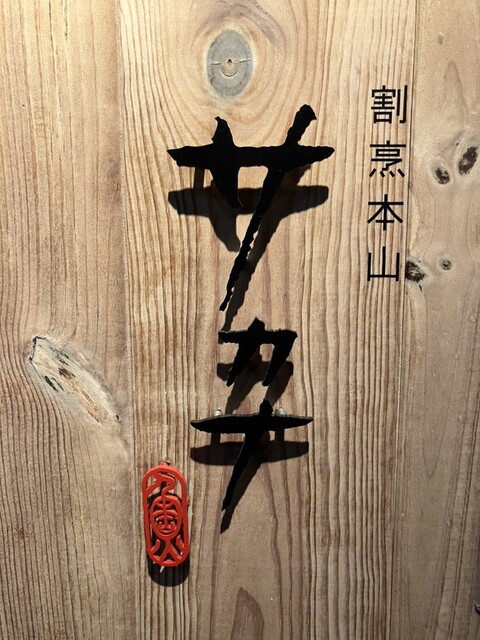 割烹本山
サカナ